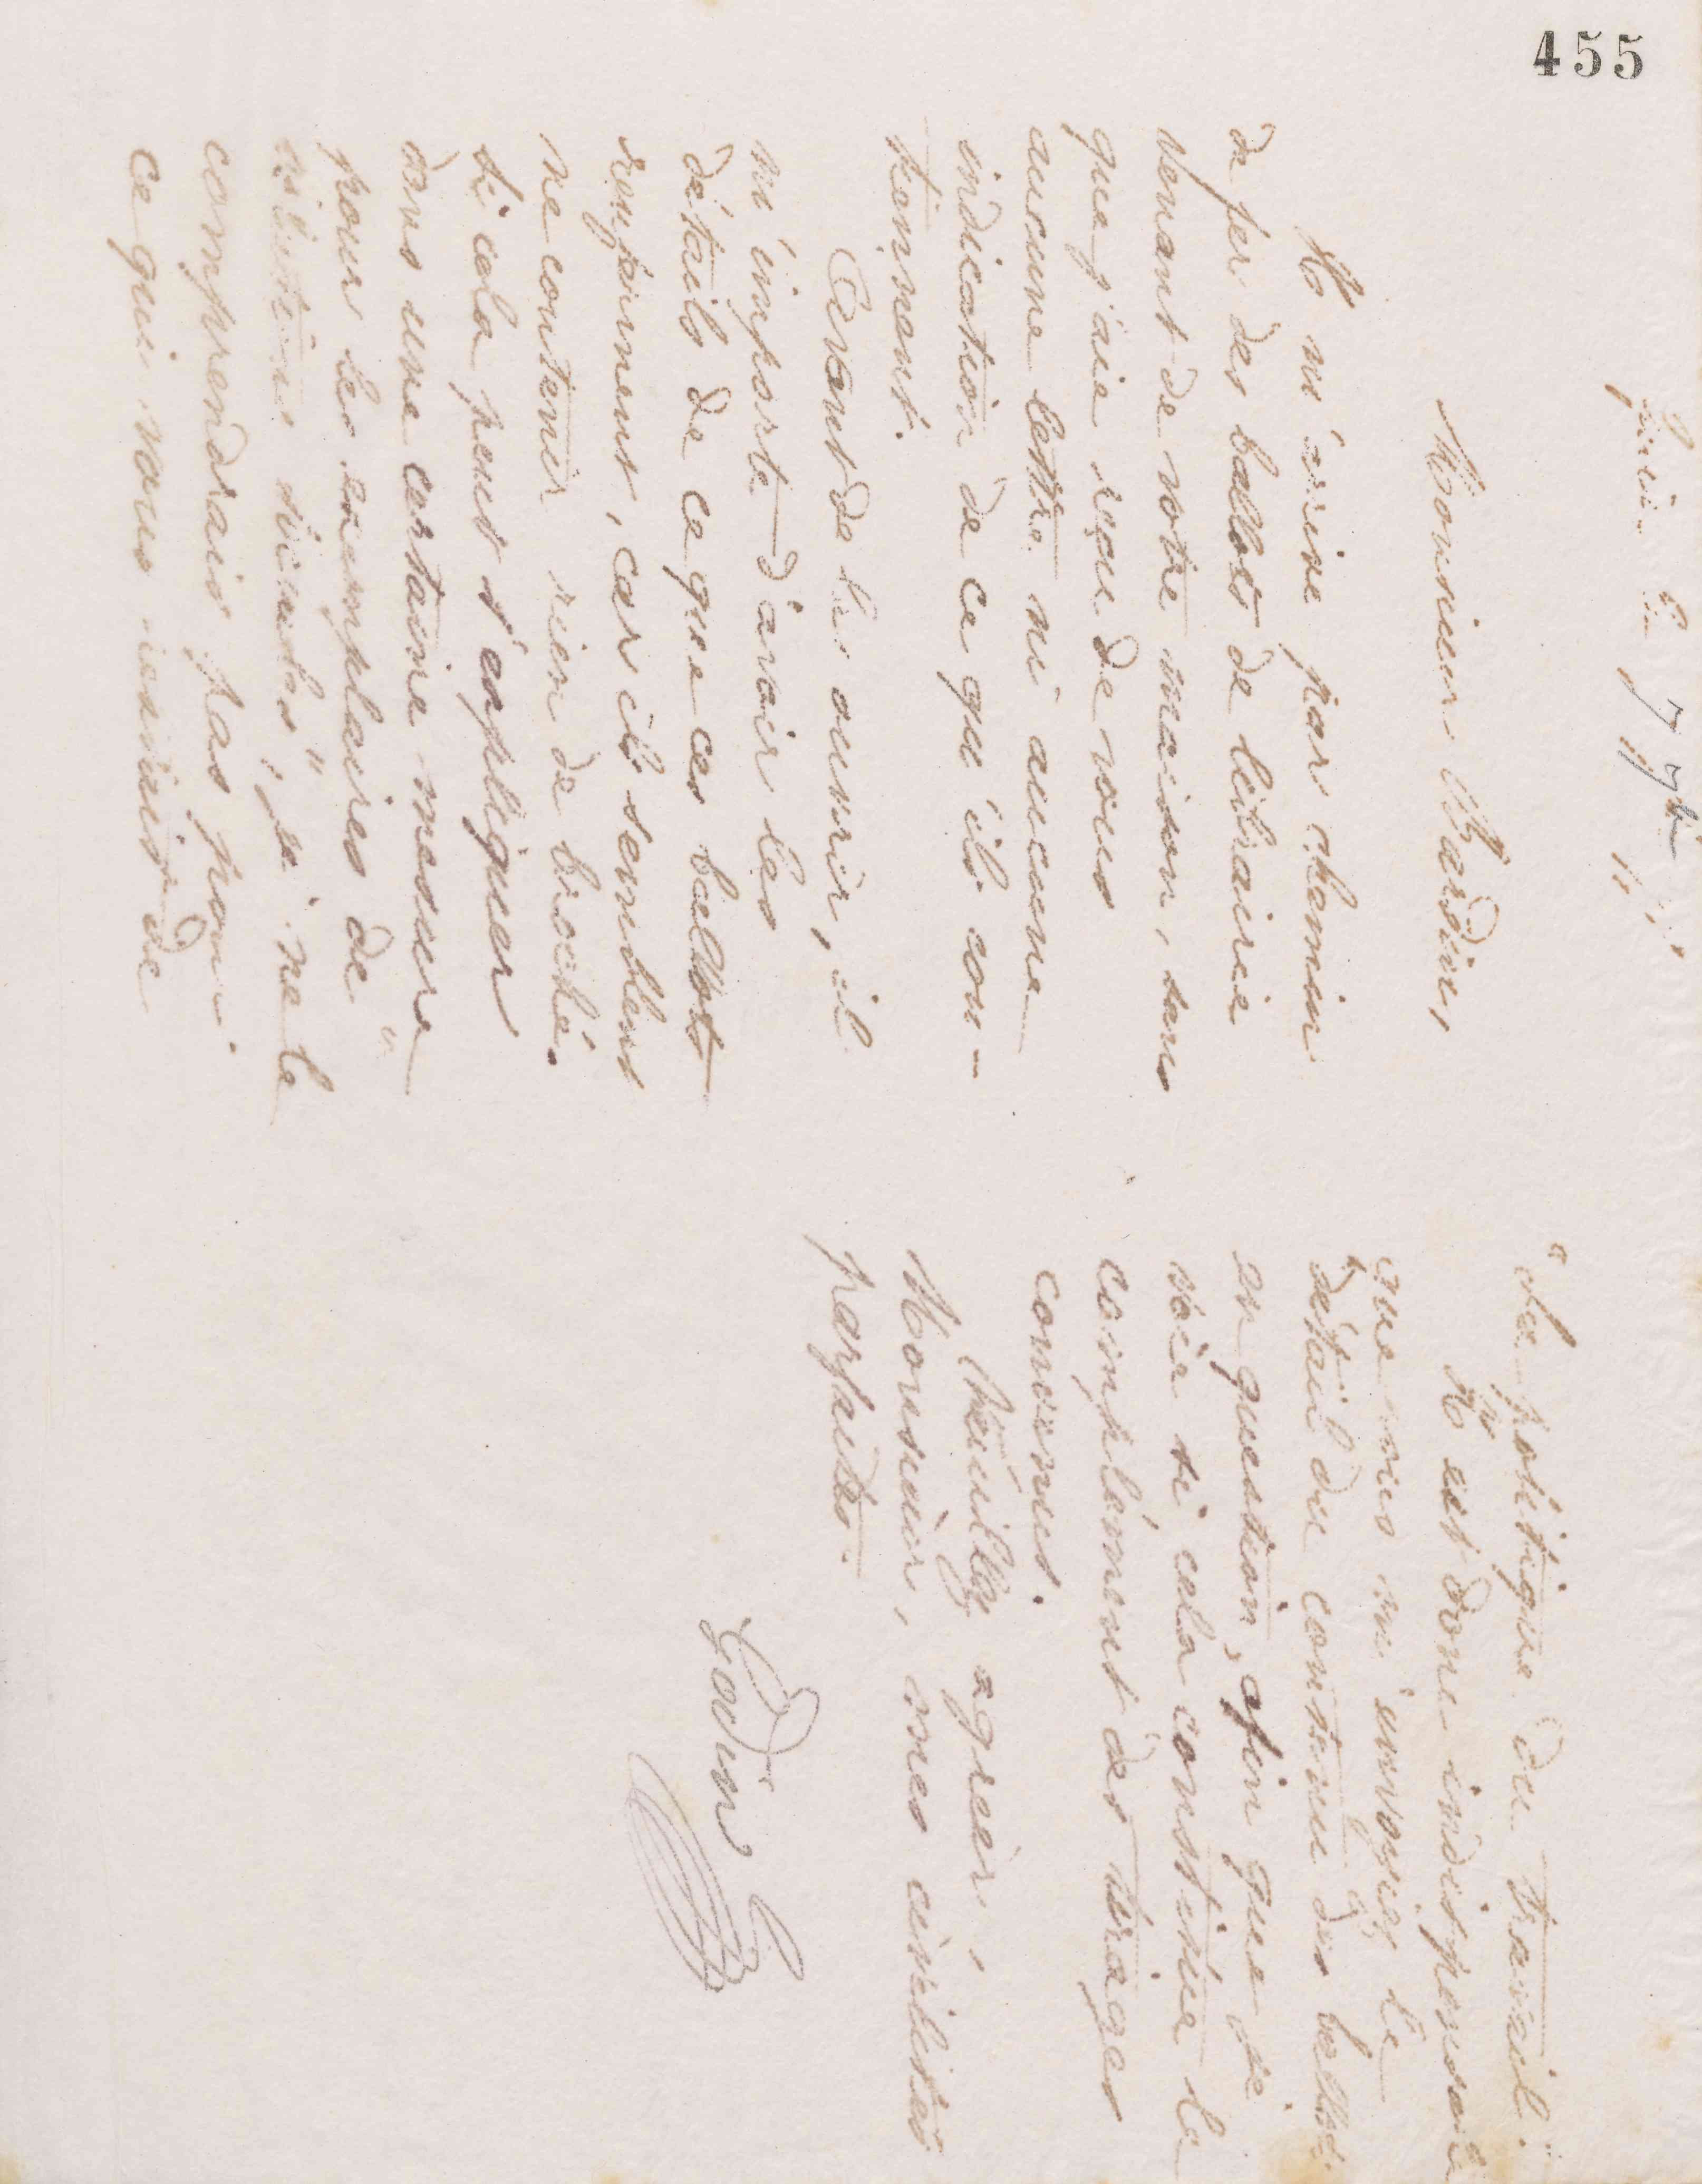 455
Guise le 7 7bre
Monsieur Bardin,
Il m'arrive par chemin
de fer des ballots de librairie
venant de votre maison, sans
que j'aie reçu de vous
aucune lettre ni aucune
indication de ce qu'ils con-
tiennent.
Avant de les ouvrir, il
m'importe d'avoir les
détails de ce que ces ballots
renferment, car ils semblent
ne contenir rien de broché.
Si cela peut s'expliquer
dans une certaine mesure
pour les exemplaires de "
sociales", je ne le
comprendrais pas pour
ce qui nous restait de
"La politique du travail".
Il est donc indispensable
que vous m'envoyiez le
détail du contenu des ballots
en question, afin que je
voie si cela constitue le
complément des tirages
convenus.
Veuillez agréer,
Monsieur, mes civilités
parfaites.
Godin